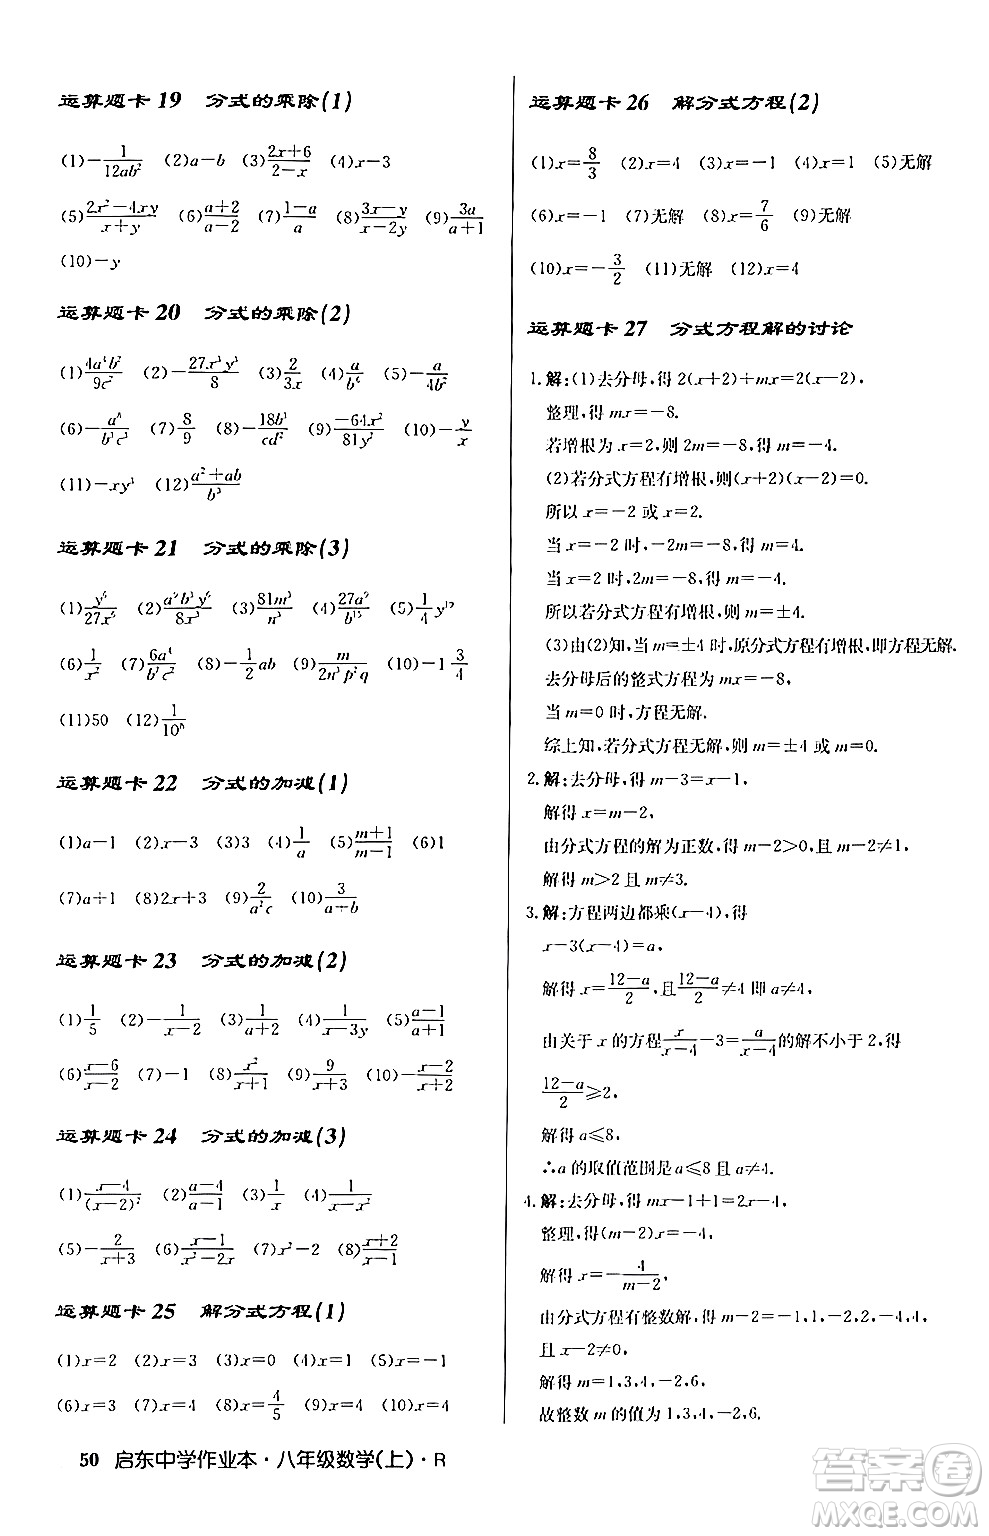 运算题卡 19 分式的乘除(1)
(1)-1/(12ab²) (2)a-b (3)(2x+6)/(2-x) (4)x-3
(5)(2x²-4xy)/(x+y) (6)(a+2)/(a-2) (7)(1-a)/a (8)(3x-y)/(x-2y) (9)3a/(a+1)
(10)-y
运算题卡 20 分式的乘除(2)
(3)2/(3x)
(7)8/9
(12)(a²+ab)/b³
运算题卡 21 分式的乘除(3)
(8)-1/2 ab (10)3/4
(11)50
运算题卡 22 分式的加减(1)
(1)a-1 (2)x+3 (3)3 (4)1/a (5)(m+1)/(m-1) (6)1
(7)a+1 (8)2x+3 (9)2/(a²c) (10)3/(a-b)
运算题卡 23 分式的加减(2)
(1)1/5 (2)-1/(x-2) (3)1/(a+2) (4)1/(x-3y) (5)(a-1)/(a+1)
(6)(x-6)/(x-2) (7)1/(x+2) (8)x²/(x+1) (9)9/(x+3) (10)(x-2)/(x+2)
运算题卡 24 分式的加减(3)
(1)(x-4)/(x-2)² (2)(a-4)/(a-1) (3)1/x (4)1/(x-1)
(5)-2/(x+3) (6)(x-1)/(x²-2x) (7)x²-1 (8)(x+2)/x
运算题卡 25 解分式方程(1)
(1)x=2 (2)x=3 (3)x=0 (4)x=1 (5)x=-1
(6)x=3 (7)x=4 (8)x=4/5 (9)x=4
50 启东中学作业本·八年级数学(上)·R
运算题卡 26 解分式方程(2)
(1)x=8/3 (2)x=4 (3)x=-1 (4)x=1 (5)无解
(6)x=-1 (7)无解 (8)x=7/6 (9)无解
(10)x=-3/2 (11)无解 (12)x=4
运算题卡 27 分式方程解的讨论
1.解:(1)去分母,得 2(x+2)+mx=2(x-2),
整理,得 mx=-8.
若增根为 x=2,则 2m=-8,得 m=-4.
(2)若分式方程有增根,则(x+2)(x-2)=0.
所以 x=-2 或 x=2.
当 x=-2 时,-2m=-8,得 m=4.
当 x=2 时,2m=-8,得 m=-4.
所以若分式方程有增根,则 m=±4.
(3)由(2)知,当 m=±4 时,原分式方程有增根,即方程无解.
去分母后的整式方程为 mx=-8,
当 m=0 时,方程无解.
综上知,若分式方程无解,则 m=±4 或 m=0.
2.解:去分母,得 m-3=x-1,
解得 x=m-2.
由分式方程的解为正数,得 m-2>0,且 m-2≠1,
解得 m>2 且 m≠3.
3.解:方程两边都乘(x-4),得
x-3(x-4)=a,
解得 x=(12-a)/2,且(12-a)/2≠4 即 a≠4,
由关于 x 的方程x/(x-4)-3=a/(x-4)的解不小于 2,得
(12-a)/2≥2,
解得 a≤8,
∴a 的取值范围是 a≤8 且 a≠4.
4.解:去分母,得 mx-1+1=2x-4,
整理,得(m-2)x=-4,
解得 x=-4/(m-2),
由分式方程有整数解,得 m-2=-1,1,-2,2,-4,4,
且 x-2≠0,
解得 m=1,3,4,-2,6,
故整数 m 的值为 1,3,4,-2,6.
答案圈
MXQE.COM